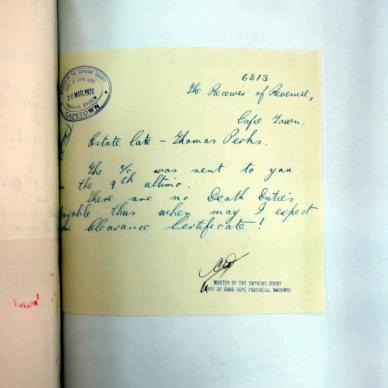 6313
The Receiver of Revenue,
Cape Town.
MASTER OF THE SUPREME COURT
MAR. 1928
PROVINCIAL DIVISION
CAPETOWN
Estate Late - Thomas Perks.
The a/c was sent to you
on the 9th ultimo.
There are no Death Duties
payable thus when may I expect
Clearance Certificate!
MASTER OF THE SUPREME COURT
CAPE OF GOOD HOPE PROVINCIAL DIVISION